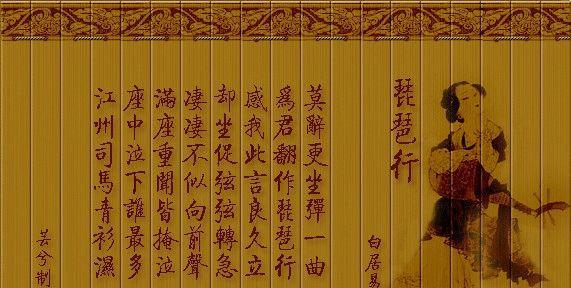 琵琶行
白居易
莫辭更坐彈一曲
爲君翻作琵琶行
感我此言良久立
却坐促弦弦轉急
凄凄不似向前聲
滿座重聞皆掩泣
座中泣下誰最多
江州司馬青衫濕
芸兮制